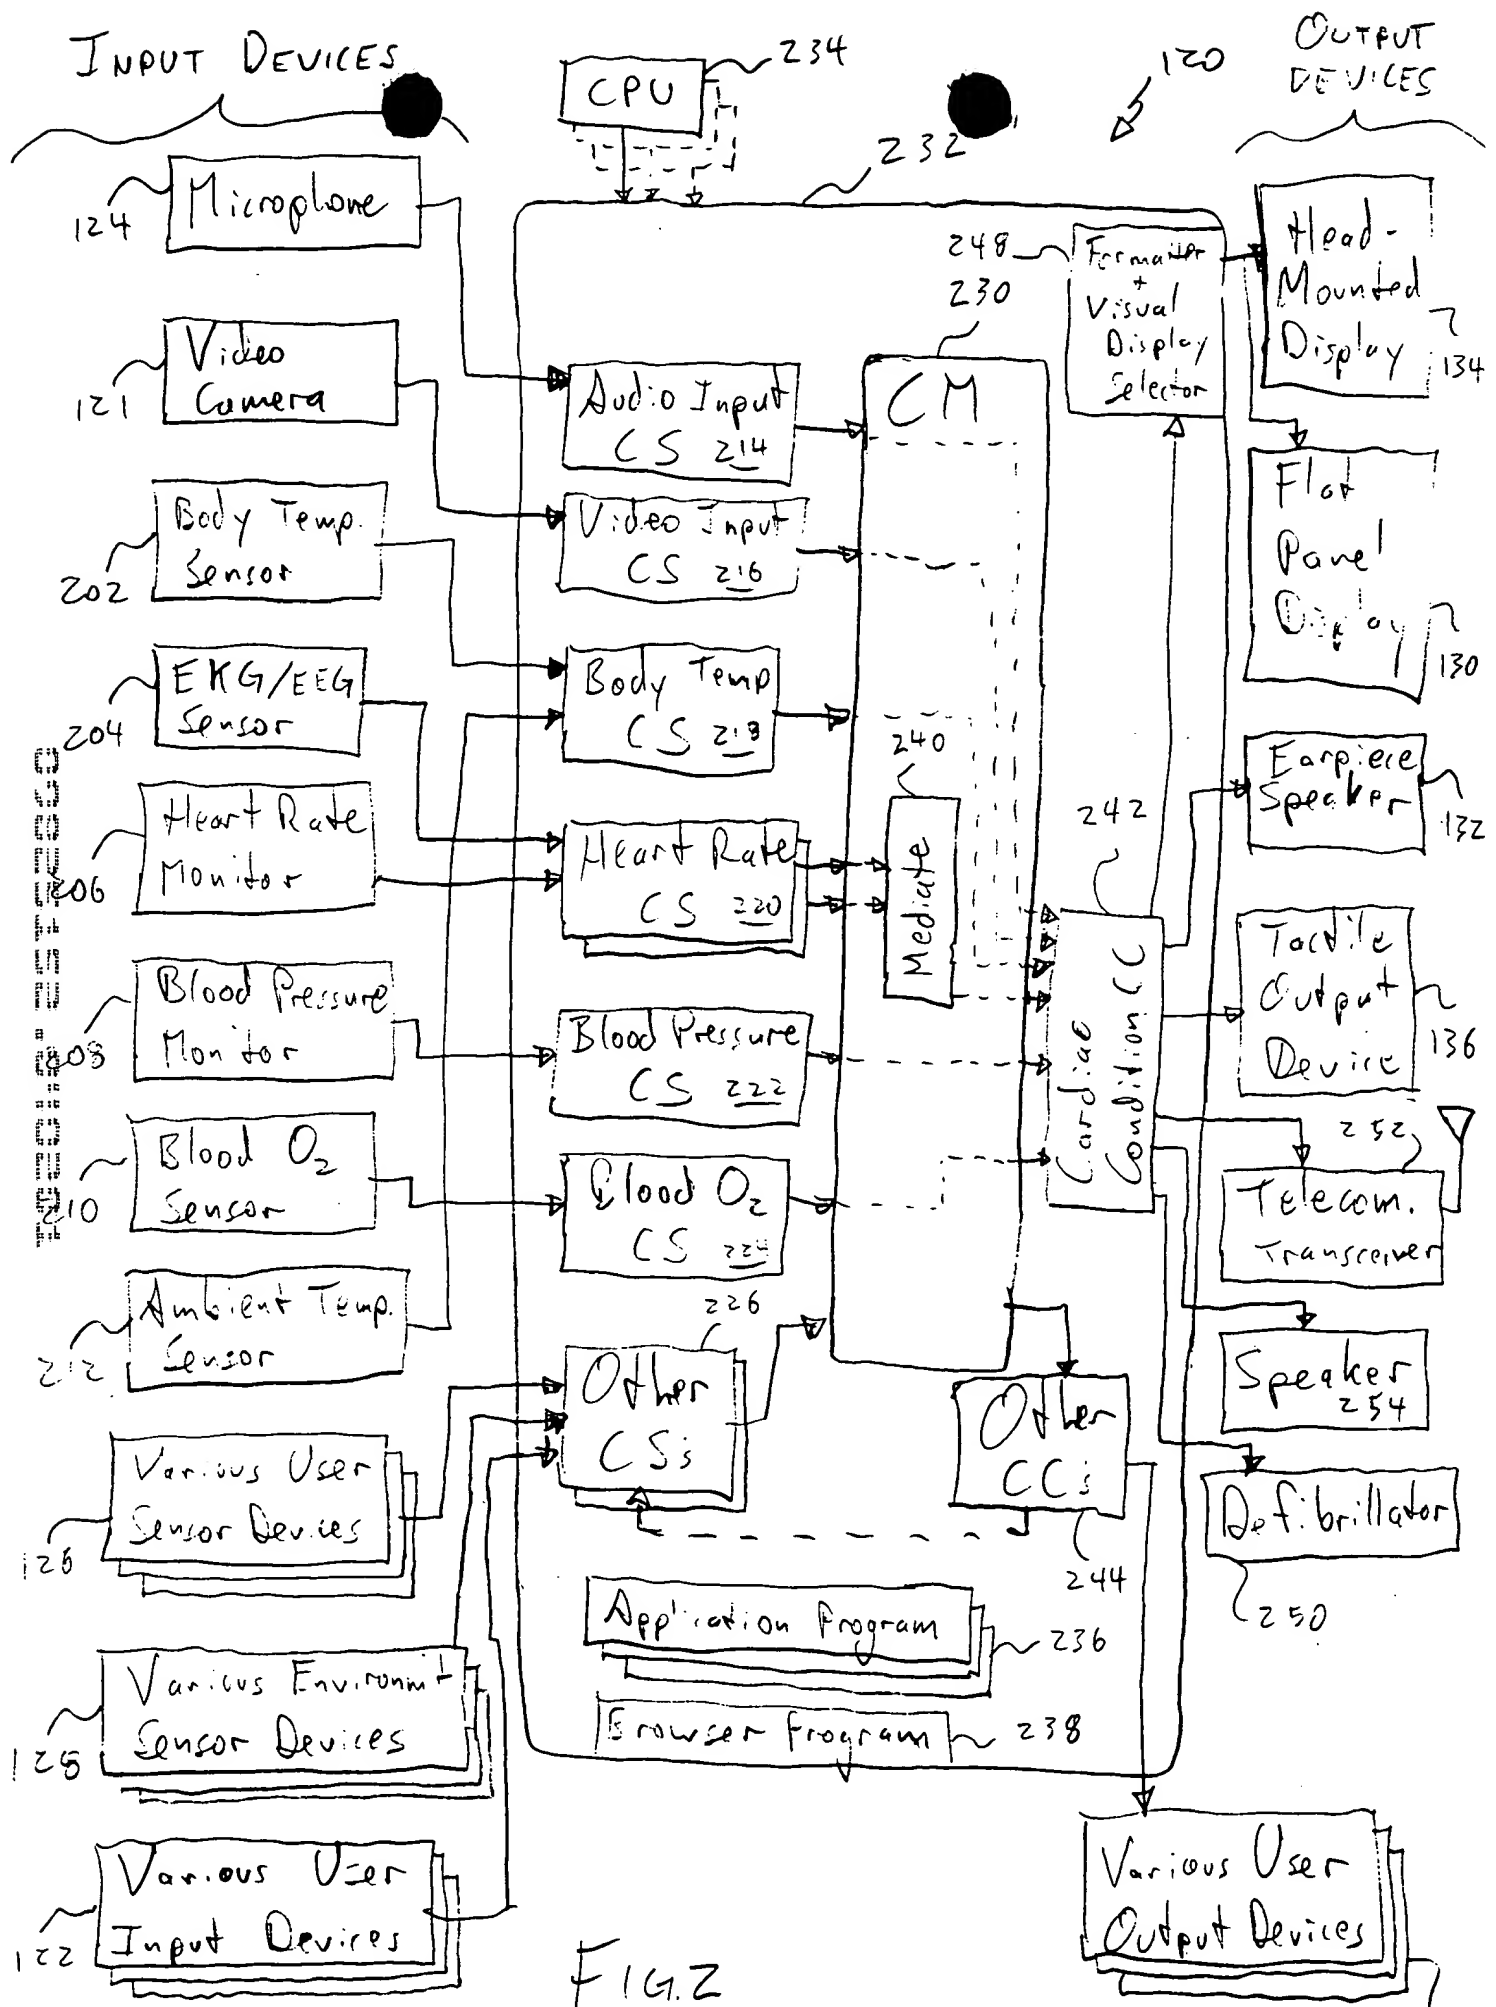 INPUT DEVICES
OUTPUT
DEVICES
CPU
234
120
232
Microphone
124
Video
Camera
121
Body Temp.
Sensor
202
EKG/EEG
Sensor
204
Heart Rate
Monitor
206
Blood Pressure
Monitor
208
Blood O2
Sensor
210
Ambient Temp.
Sensor
212
Various User
Sensor Devices
126
Various Environmt
Sensor Devices
128
Various User
Input Devices
122
Audio Input
CS 214
Video Input
CS 216
Body Temp
CS 218
Heart Rate
CS 220
Blood Pressure
CS 222
Blood O2
CS 224
226
Other
CSs
CM
230
240
Mediate
242
Cardiac
Condition CC
248
Formatter
+
Visual
Display
Selector
Other
CCs
244
Application Program
236
Browser Program
238
Head-
Mounted
Display
134
Flat
Panel
Display
130
Earpiece
Speaker
132
Tactile
Output
Device
136
252
Telecom.
Transceiver
Speaker
254
Defibrillator
250
Various User
Output Devices
FIG. 2